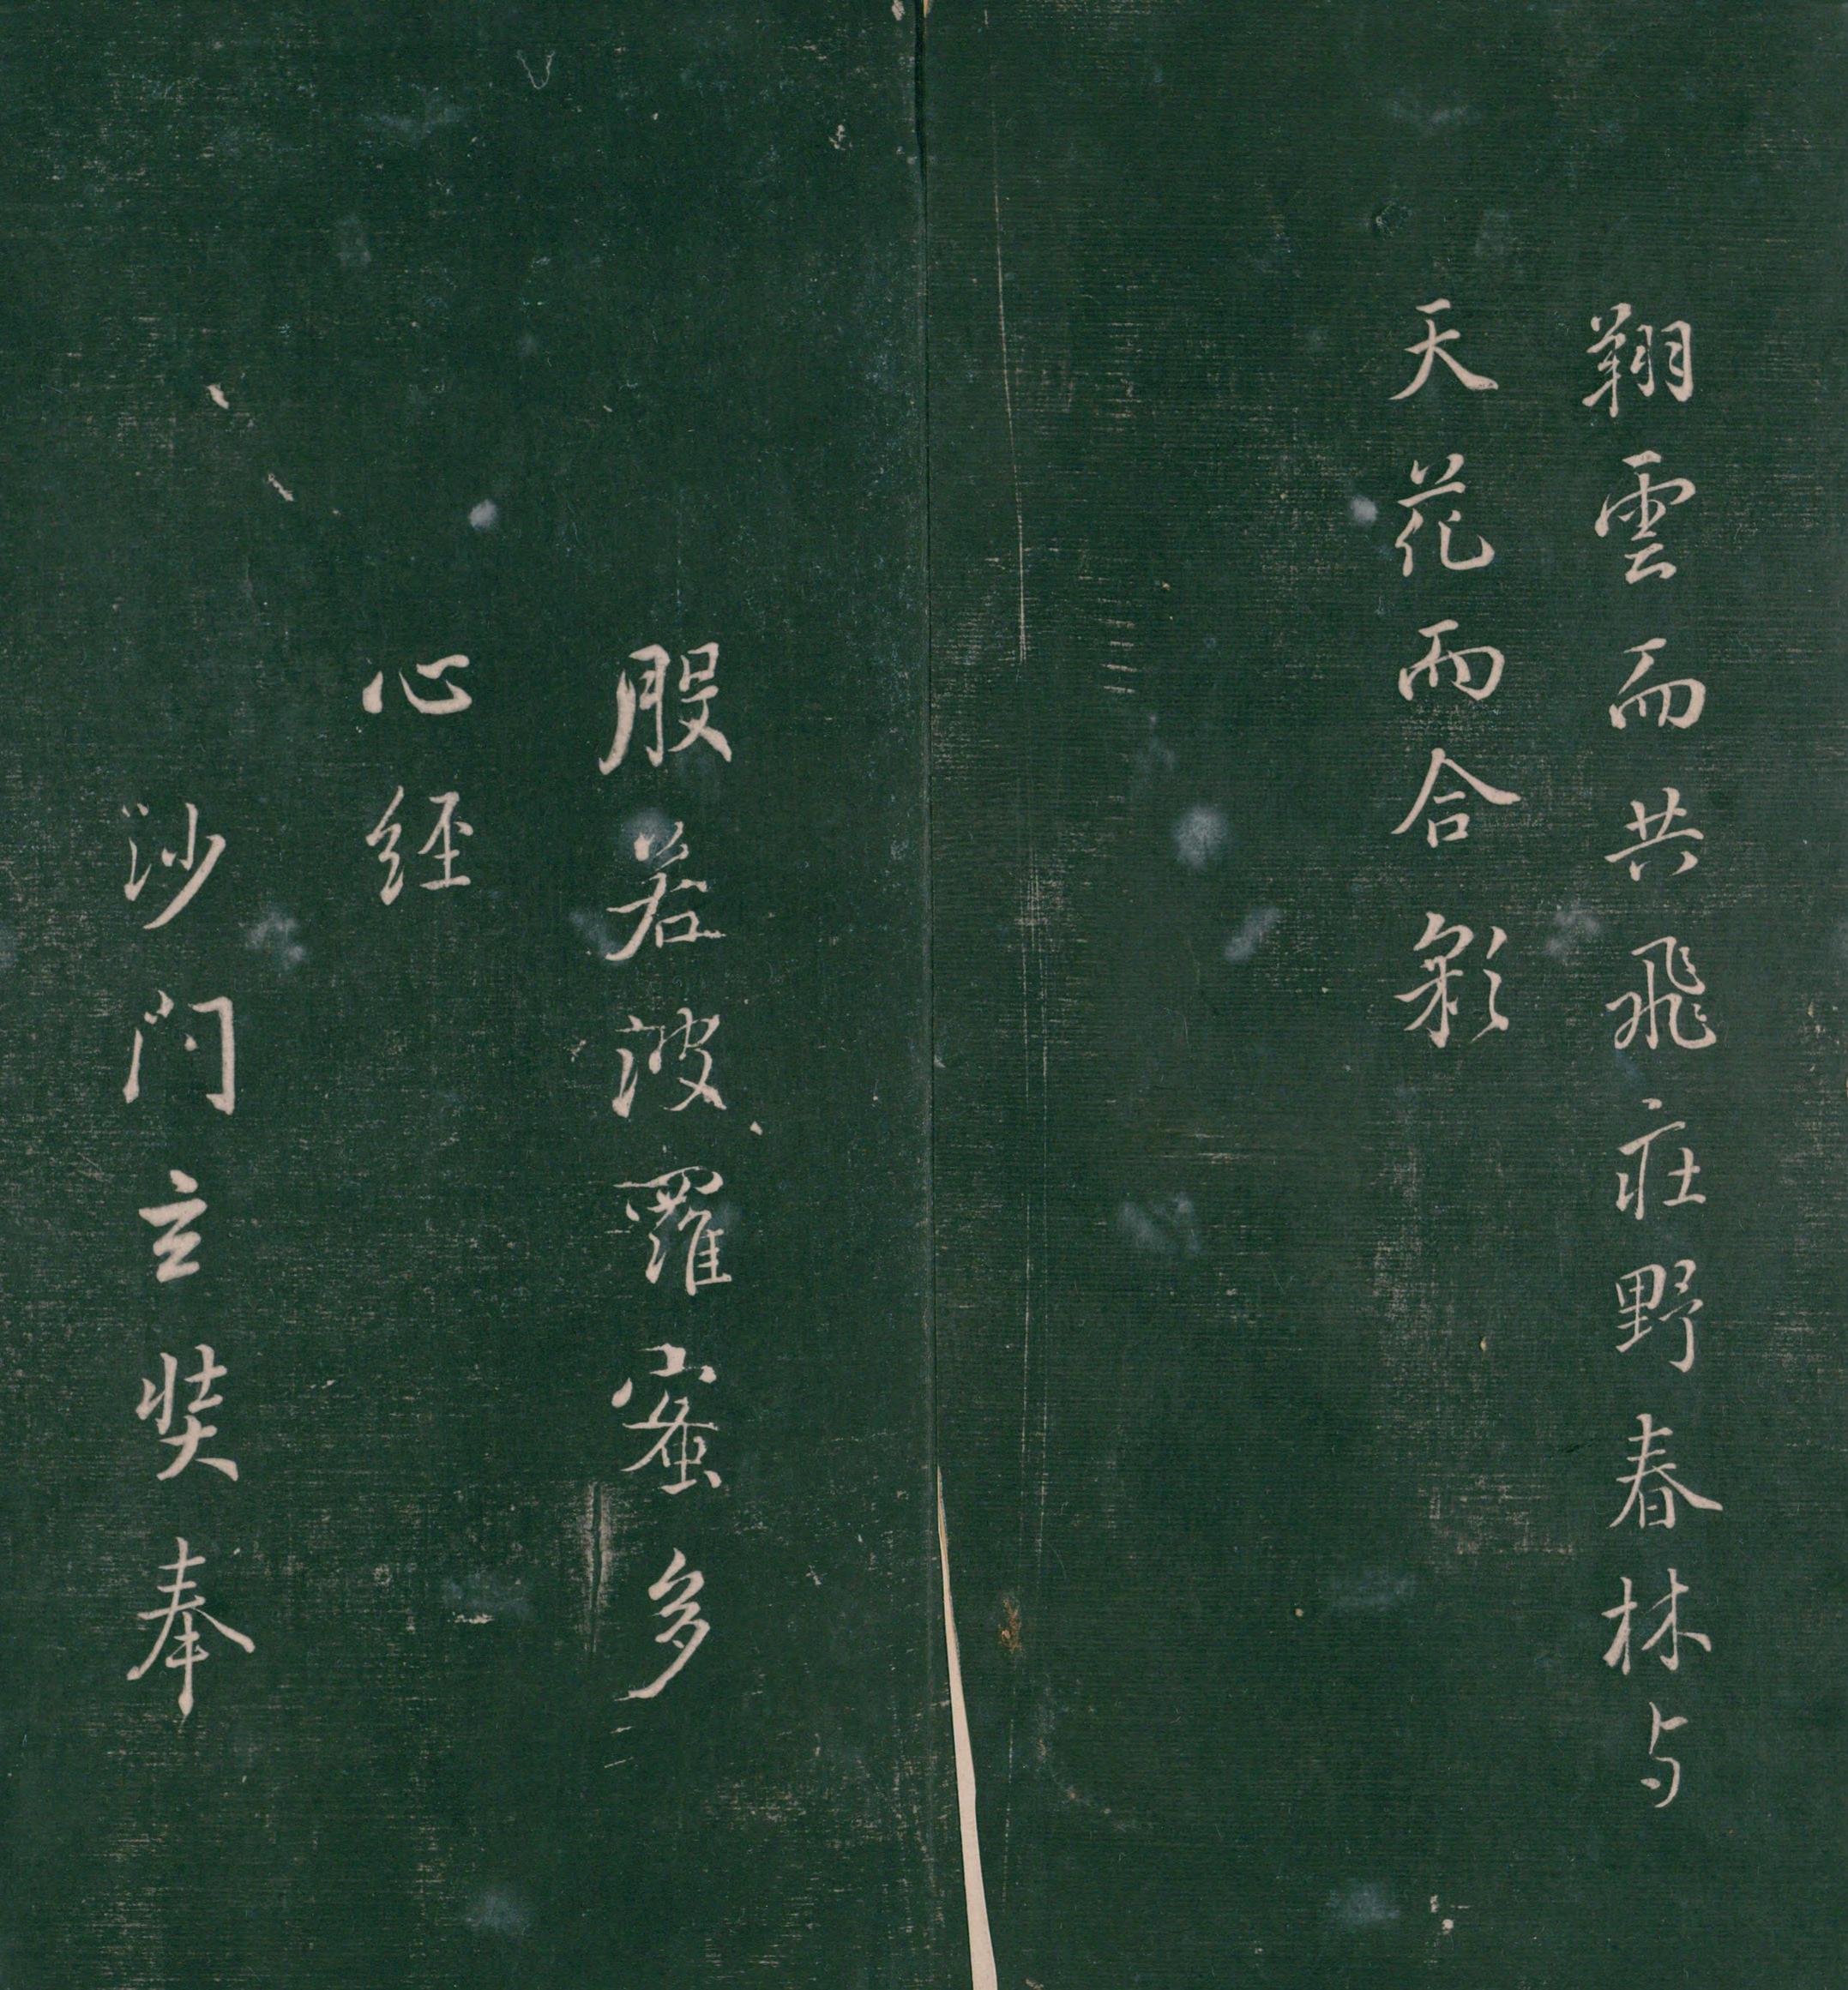 翔雲而共飛莊野春林与
天花而合彩
般若波羅蜜多
心経
沙門玄奘奉